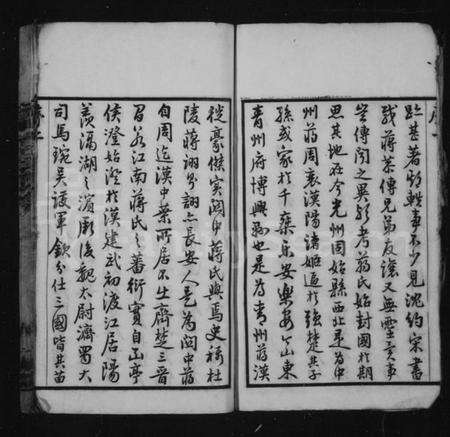 貽甚著頗軼事不少見沈約宋書
或蔣恭傳兄弟友讓又無靈豈事
豈傳聞之異歟考蔣氏始封國於期
思其地在今光州固始縣西北業為中
州蔣周衰漢陽諸姬逼於強楚其子
孫或家於千乘樂安樂安今山東
青州府博興縣也是為青州蔣漢
從豪傑實關中蔣氏與焉史稱杜
陵蔣詡字詡亦長安人是為關中蔣
自周迄漢中葉所居不出齊楚三晉
若江南蔣氏之蕃衍實自𠧩亭
侯澄始澄於漢建武初渡江居陽
羨滆湖之濱厥後魏太尉濟蜀大
司馬琬吳護軍欽分仕三國皆其苗
序一